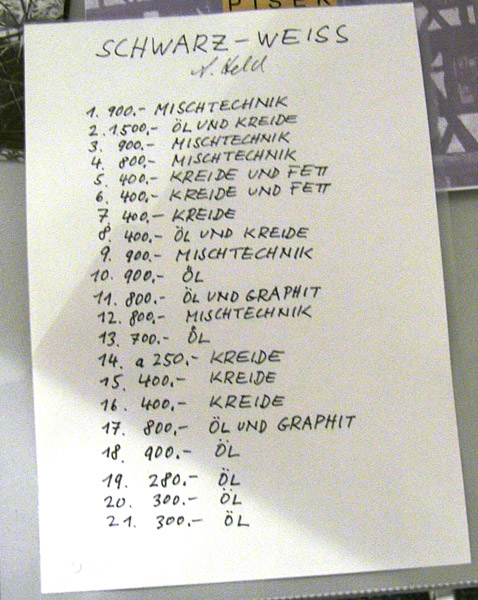 PISEK
SCHWARZ-WEISS
A. Held
1. 900.- MISCHTECHNIK
2. 1.500,- ÖL UND KREIDE
3. 900.- MISCHTECHNIK
4. 800,- MISCHTECHNIK
5. 400.- KREIDE UND FETT
6. 400.- KREIDE UND FETT
7. 400.- KREIDE
8. 400.- ÖL UND KREIDE
9. 900.- MISCHTECHNIK
10. 900.- ÖL
11. 800.- ÖL UND GRAPHIT
12. 800,- MISCHTECHNIK
13. 700.- ÖL
14. a 250.- KREIDE
15. 400.- KREIDE
16. 400.- KREIDE
17. 800,- ÖL UND GRAPHIT
18. 900.- ÖL
19. 280.- ÖL
20. 300.- ÖL
21. 300.- ÖL